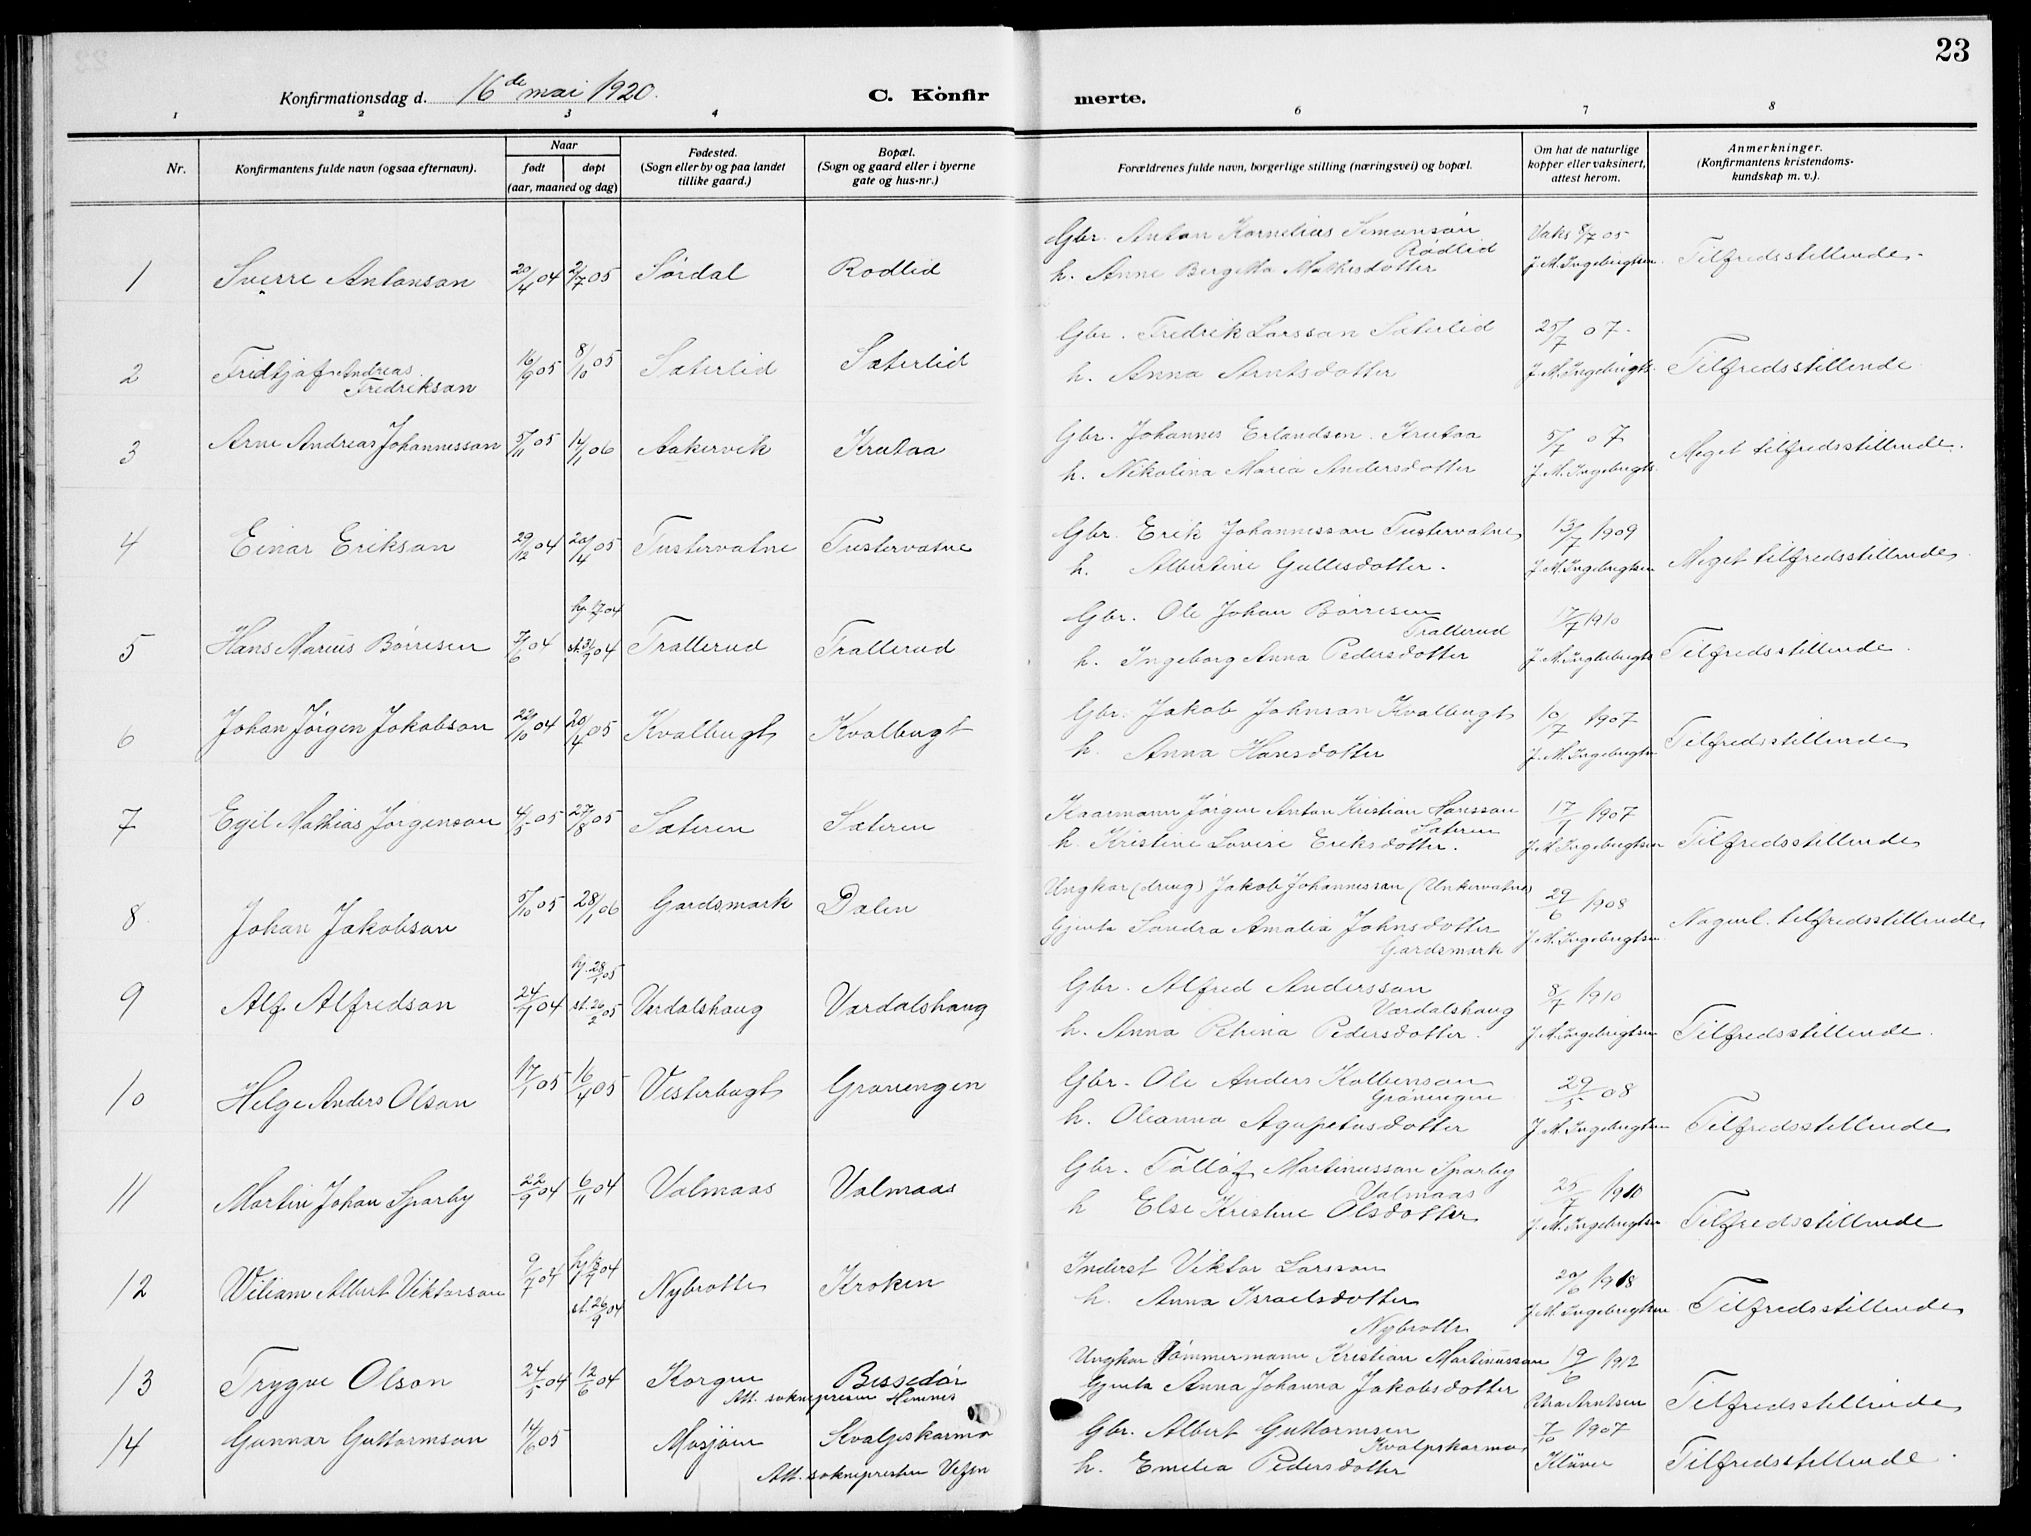 23
Konfirmationsdag d. 16de mai 1920. C. Konfirmerte.
1 2 3 4 6 7 8
Nr. Konfirmantens fulde navn (ogsaa efternavn). Naar født døpt (aar, maaned og dag) Fødested. (Sogn eller by og paa landet tillike gaard.) Bopæl. (Sogn og gaard eller i byerne gate og hus-nr.) Forældrenes fulde navn, borgerlige stilling (næringsvei) og bopæl. Om hat de naturlige kopper eller vaksinert, attest herom. Anmerkninger. (Konfirmantens kristendomskundskap m. v.).
Gbr. Anton Kornelius Simonsøn Rødlid Vaks 8/7 05
1 Sverre Antonson 20/4 04 2/7 05 Sørdal Rodlid h. Anne Bergitta Mathisdotter J. M. Ingebrigtsen Tilfredsstillende.
Gbr. Fredrik Larsson Sæterlid 25/7 07.
2 Fridtjof Andreas Fredrikson 16/9 05 8/10 05 Sæterlid Sæterlid h. Anna Arntsdotter J. M. Ingebrigts. Tilfredsstillende.
Gbr. Johannes Erlandsen Krutaa 5/7 07
3 Arne Andreas Johannesson 5/11 05 14/1 06 Aakervik Krutaa h. Nikolina Maria Andersdotter J. M. Ingebrigts. Meget tilfredsstillende.
Gbr. Erik Johannesson Tustervatne 13/7 1909
4 Einar Erikson 29/12 04 20/4 05 Tustervatne Tustervatne h. Albertine Gullesdotter. J. M. Ingebrigtsen Meget tilfredsstillende.
Gbr. Ole Johan Børresen Trallerud 17/7 1910
5 Hans Marius Børresen 7/6 04 st. 04 Trallerud Trallerud h. Ingeborg Anna Pedersdotter J. M. Ingebrigts Tilfredsstillende.
Gbr. Jakob Johnson Kvalbugt 10/7 1907
6 Johan Jørgen Jakobson 22/10 04 20/4 05 Kvalbugt Kvalbugt h. Anna Hansdotter J. M. Ingebrigtsen Tilfredsstillende
Kaarmann Jørgen Anton Kristian Hansson Sæteren 17/1 1907
7 Egil Mathias Jørgenson 4/5 05 27/8 05 Sæteren Sæteren h. Kristine Lovise Eriksdotter. J. M. Ingebrigtsen Tilfredsstillende
Ungkar (dreng) Jakob Johannesson (Unkervatne) 29/6 1908
8 Johan Jakobson 5/10 05 28/1 06 Gardsmark Dalen Gjenta Sandra Amalia Johnsdotter Gardsmark J. M. Ingebrigtsen Nogenl. tilfredsstillende
hj. 28/1 05 Gbr. Alfred Andersson Vardalshaug 8/7 1910
9 Alf Alfredson 24/1 04 st. 26/2 05 Vardalshaug Vardalshaug h. Anna Petrina Pedersdotter. J. M. Ingebrigtsen Tilfredsstillende.
Gbr. Ole Anders Kolbenson Grøningen 29/5 08
10 Helge Anders Olson 17/1 05 16/4 05 Vesterbugt Grønningen h. Oleanna Agapetusdotter J. M. Ingebrigtsen Tilfredsstillende
Gbr. Tølløf Martinusson Sparby Valmaas 25/7 1910
11 Martin Johan Sparby 22/9 04 6/11 04 Valmaas Valmaas h Else Kristine Olsdotter J. M. Ingebrigtsen Tilfredsstillende
Inderst Viktor Larsson 20/6 1918
12 Wiliam Albert Viktorson 9/7 04 st. 26/9 04 Nybrotte Kroken h. Anna Israelsdotter Nybrotte J. M. Ingebrigtsen Tilfredsstillende
Ungkar Tømmermann Kristian Martinusson 19/6 1912
13 Trygve Olson 24/5 04 12/6 04 Korgen Bessedør Gjenta Anna Johanna Jakobsdotter Petra Arntsen Tilfredsstillende
Att. soknepresten Hemnes
Gbr. Albert Guttormsen Kvalpskarmo 7/10 1907
14 Gunnar Guttormson 14/6 05 Mosjøen Kvalpskarmo h. Emelia Pedersdotter Klüver Tilfredsstillende.
Att. soknepresten Vefsn